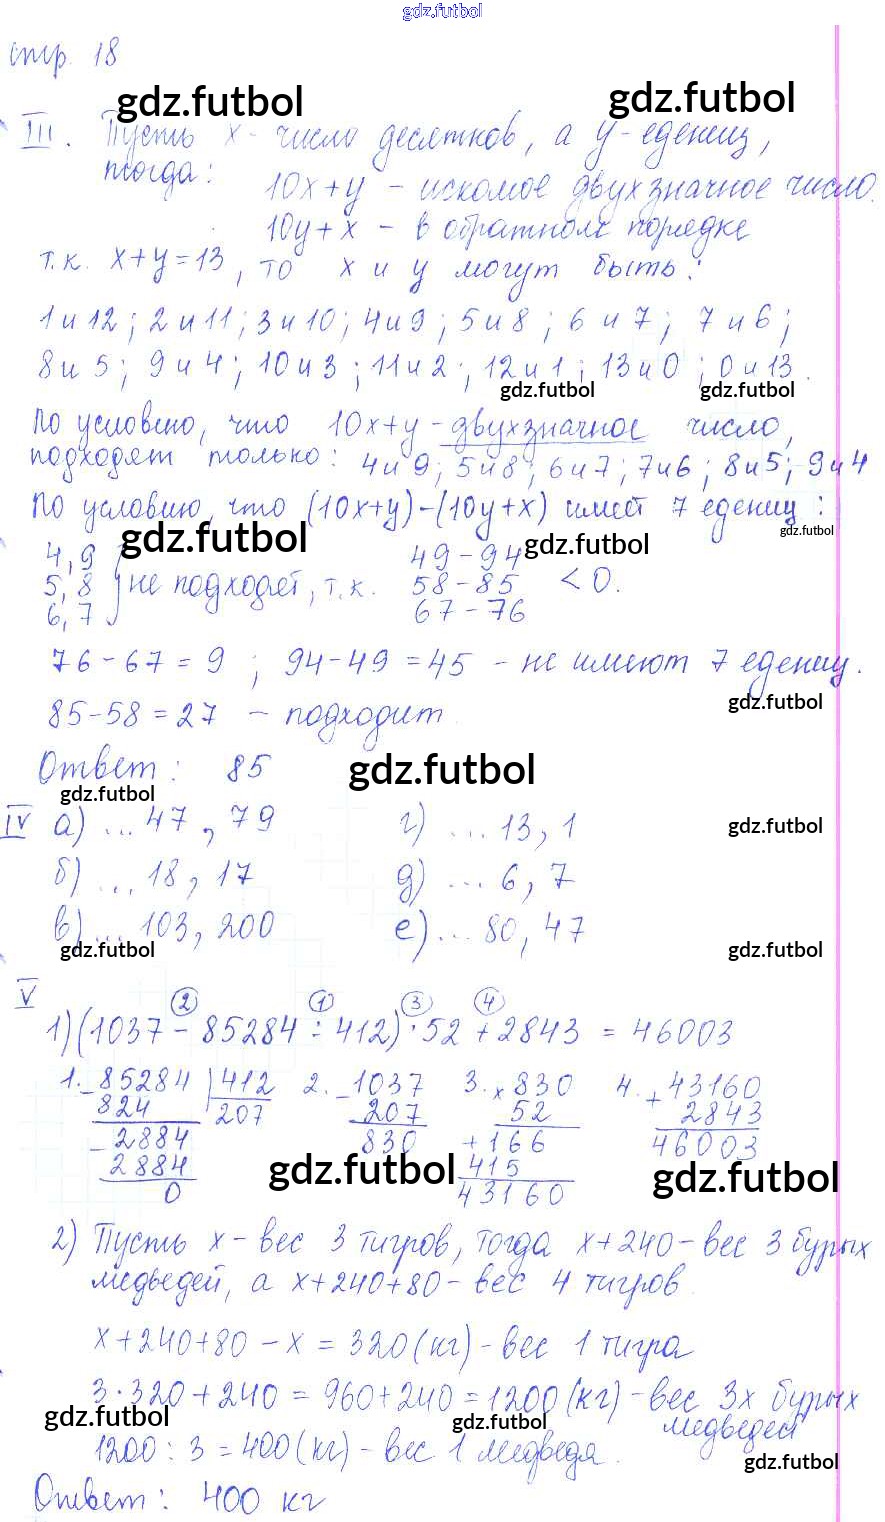 gdz.futbol
стр. 18
gdz.futbol gdz.futbol
III. Пусть x - число десятков, а y - едениц,
тогда:
10x+y - искомое двухзначное число.
10y+x - в обратном порядке
т.к. x+y=13, то x и y могут быть:
1 и 12; 2 и 11; 3 и 10; 4 и 9; 5 и 8; 6 и 7; 7 и 6;
8 и 5; 9 и 4; 10 и 3; 11 и 2; 12 и 1; 13 и 0; 0 и 13.
gdz.futbol gdz.futbol
По условию, что 10x+y - двухзначное число,
подходят только: 4 и 9; 5 и 8; 6 и 7; 7 и 6; 8 и 5; 9 и 4
По условию, что (10x+y)-(10y+x) имеет 7 едениц:
gdz.futbol gdz.futbol gdz.futbol
4,9 49-94
5,8 } не подходят, т.к. 58-85 <0.
6,7 67-76
76-67=9; 94-49=45 - не имеют 7 едениц.
gdz.futbol
85-58=27 - подходит.
Ответ: 85
gdz.futbol
gdz.futbol
IV а) ...47, 79 г) ...13, 1
gdz.futbol
б) ...18, 17 д) ...6, 7
в) ...103, 200 е) ...80, 47
gdz.futbol gdz.futbol
V
② ① ③ ④
1) (1037 - 85284 : 412) · 52 + 2843 = 46003
1. -85284 | 412 2. -1037 3. ×830 4. +43160
824 207 207 52 2843
-2884 830 +166 46003
2884 415
0 43160
gdz.futbol gdz.futbol
2) Пусть x - вес 3 тигров, тогда x+240 - вес 3 бурых
медведей, а x+240+80 - вес 4 тигров.
x+240+80-x=320 (кг) - вес 1 тигра
3·320+240=960+240=1200 (кг) - вес 3х бурых
медведей
gdz.futbol gdz.futbol
1200:3=400 (кг) - вес 1 медведя.
gdz.futbol
Ответ: 400 кг